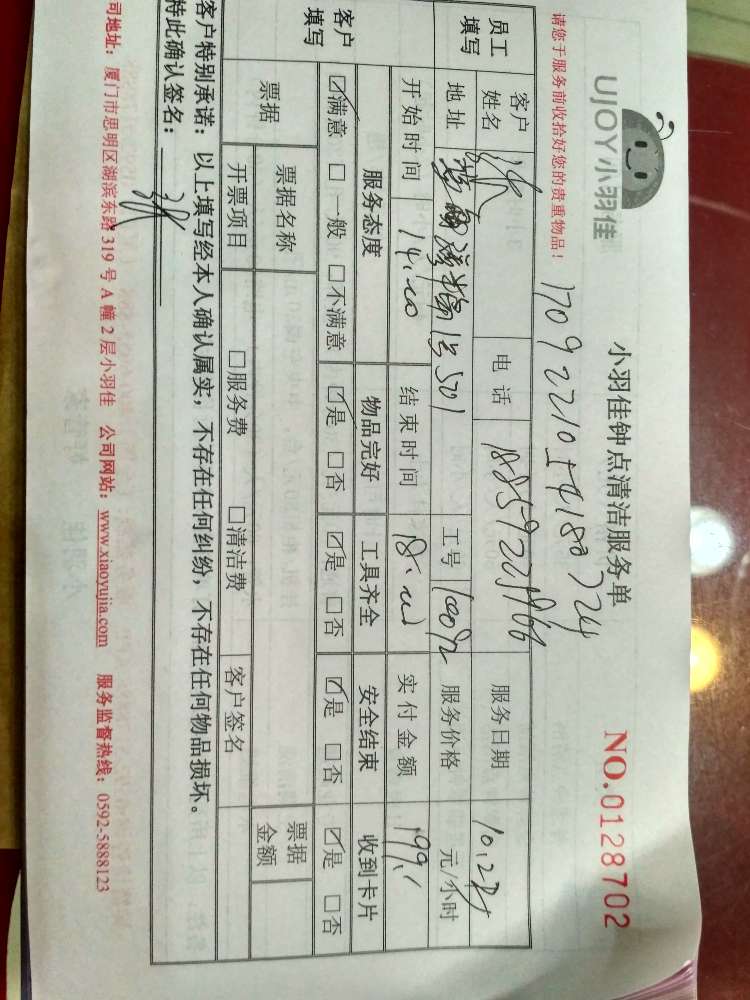 UJOY小羽佳
小羽佳钟点清洁服务单
NO.0128702
请您于服务前收拾好您的贵重物品!
员工填写
客户姓名 张 电话 服务日期
地址 501 工号 服务价格 元/小时
开始时间 14:00 结束时间 18:00 实付金额 199.
客户填写
服务态度 物品完好 工具齐全 安全结束 收到卡片
☑满意 □一般 □不满意 ☑是 □否 ☑是 □否 ☑是 □否 ☑是 □否
票据 票据名称 票据金额
开票项目 □服务费 □清洁费 客户签名
客户特别承诺:以上填写经本人确认属实,不存在任何纠纷,不存在任何物品损坏。
特此确认签名: 张
司地址:厦门市思明区湖滨东路319号A幢2层小羽佳 公司网站:www.xiaoyujia.com 服务监督热线:0592-5888123